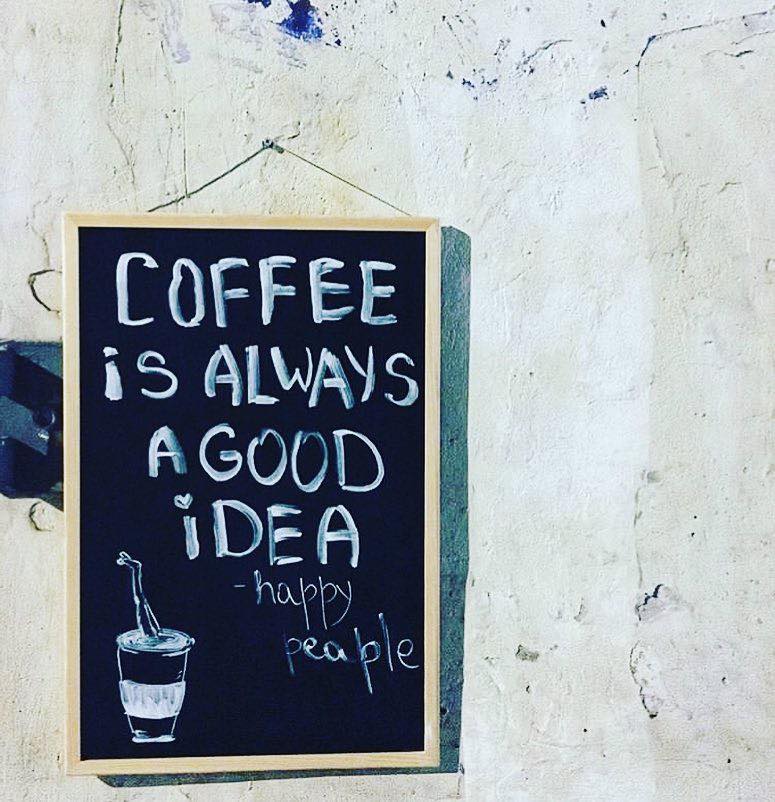 COFFEE
iS ALWAYS
A GOOD
iDEA
-happy
peaple